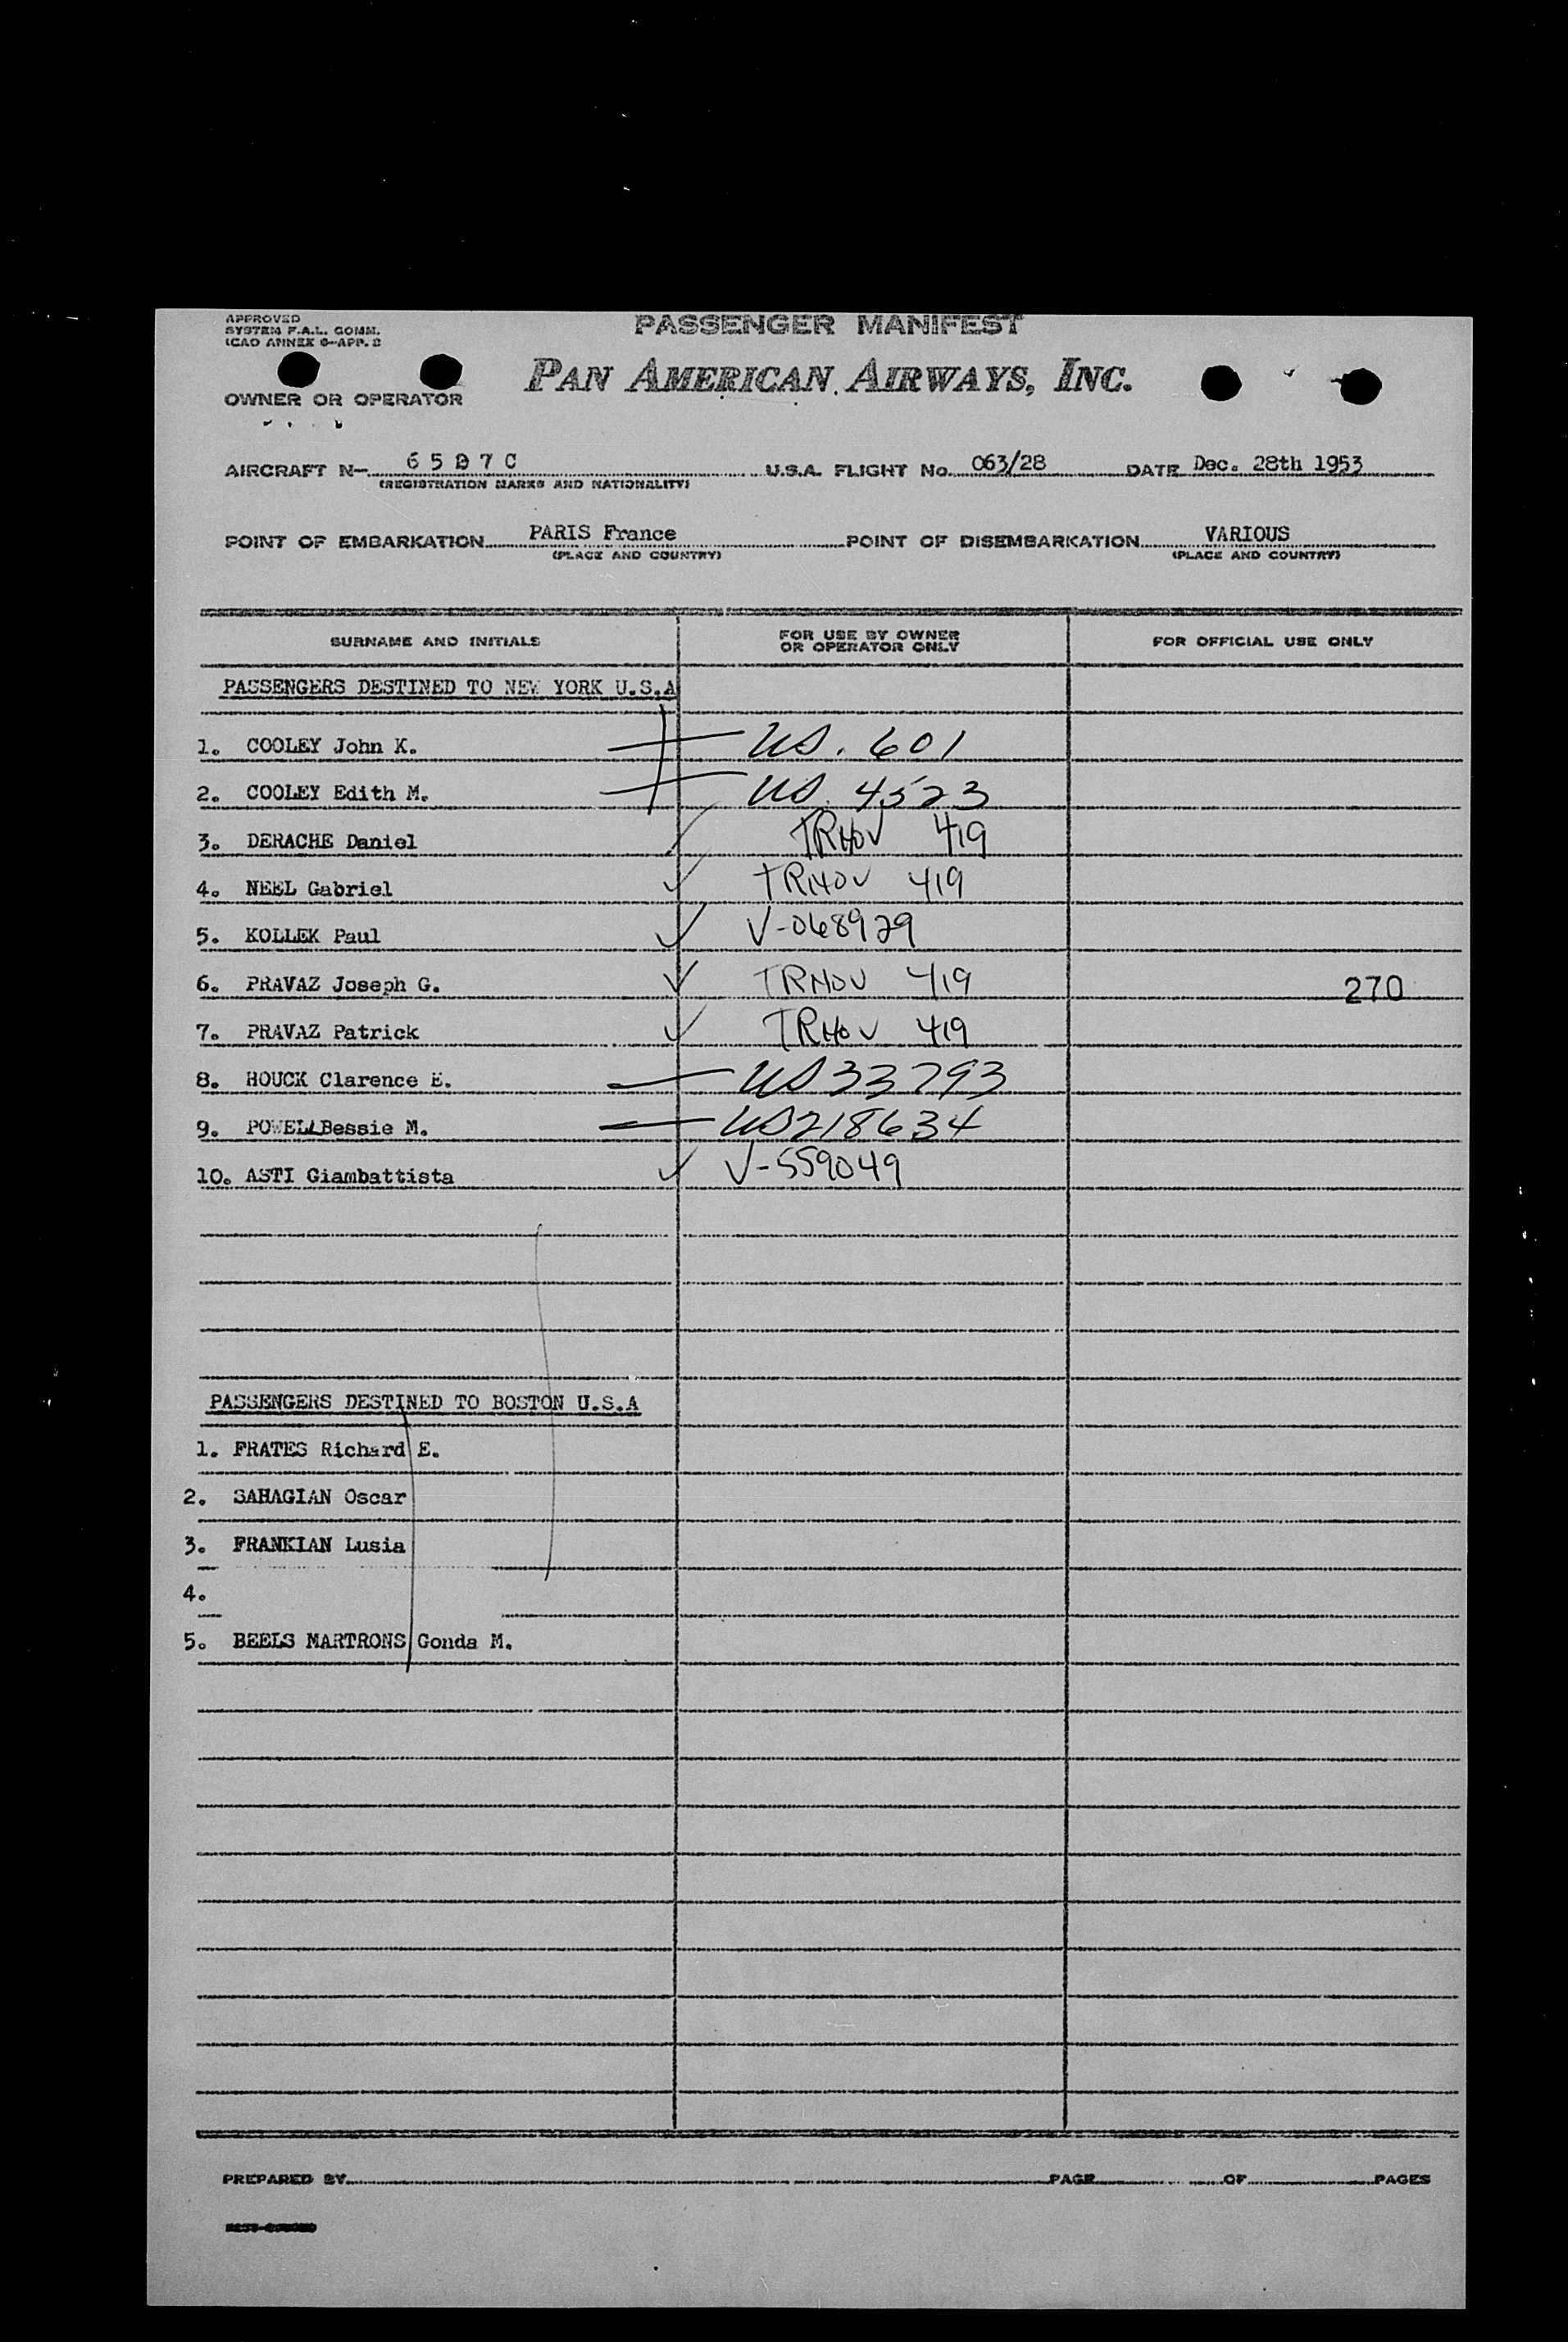 APPROVED
SYSTEM F.A.L. COMM.
ICAO ANNEX 9-APP. 2
PASSENGER MANIFEST
PAN AMERICAN AIRWAYS, INC.
OWNER OR OPERATOR
AIRCRAFT N- U.S.A. FLIGHT No. 063/28 DATE Dec. 28th 1953
(REGISTRATION MARKS AND NATIONALITY)
POINT OF EMBARKATION PARIS France POINT OF DISEMBARKATION VARIOUS
(PLACE AND COUNTRY) (PLACE AND COUNTRY)
SURNAME AND INITIALS FOR USE BY OWNER OR OPERATOR ONLY FOR OFFICIAL USE ONLY
PASSENGERS DESTINED TO NEW YORK U.S.A
1. COOLEY John K. US. 601
2. COOLEY Edith M. US. 4523
3. DERACHE Daniel TRHOV 419
4. NEEL Gabriel TRHOV 419
5. KOLLEK Paul V-068929
6. PRAVAZ Joseph G. TRHOV 419 270
7. PRAVAZ Patrick TRHOV 419
8. HOUCK Clarence E. US 33793
9. POWELL Bessie M. US 218634
10. ASTI Giambattista V-559049
PASSENGERS DESTINED TO BOSTON U.S.A
1. FRATES Richard E.
2. SAHAGIAN Oscar
3. FRANKIAN Lusia
4.
5. BEELS MARTRONS Gonda M.
PREPARED BY PAGE OF PAGES